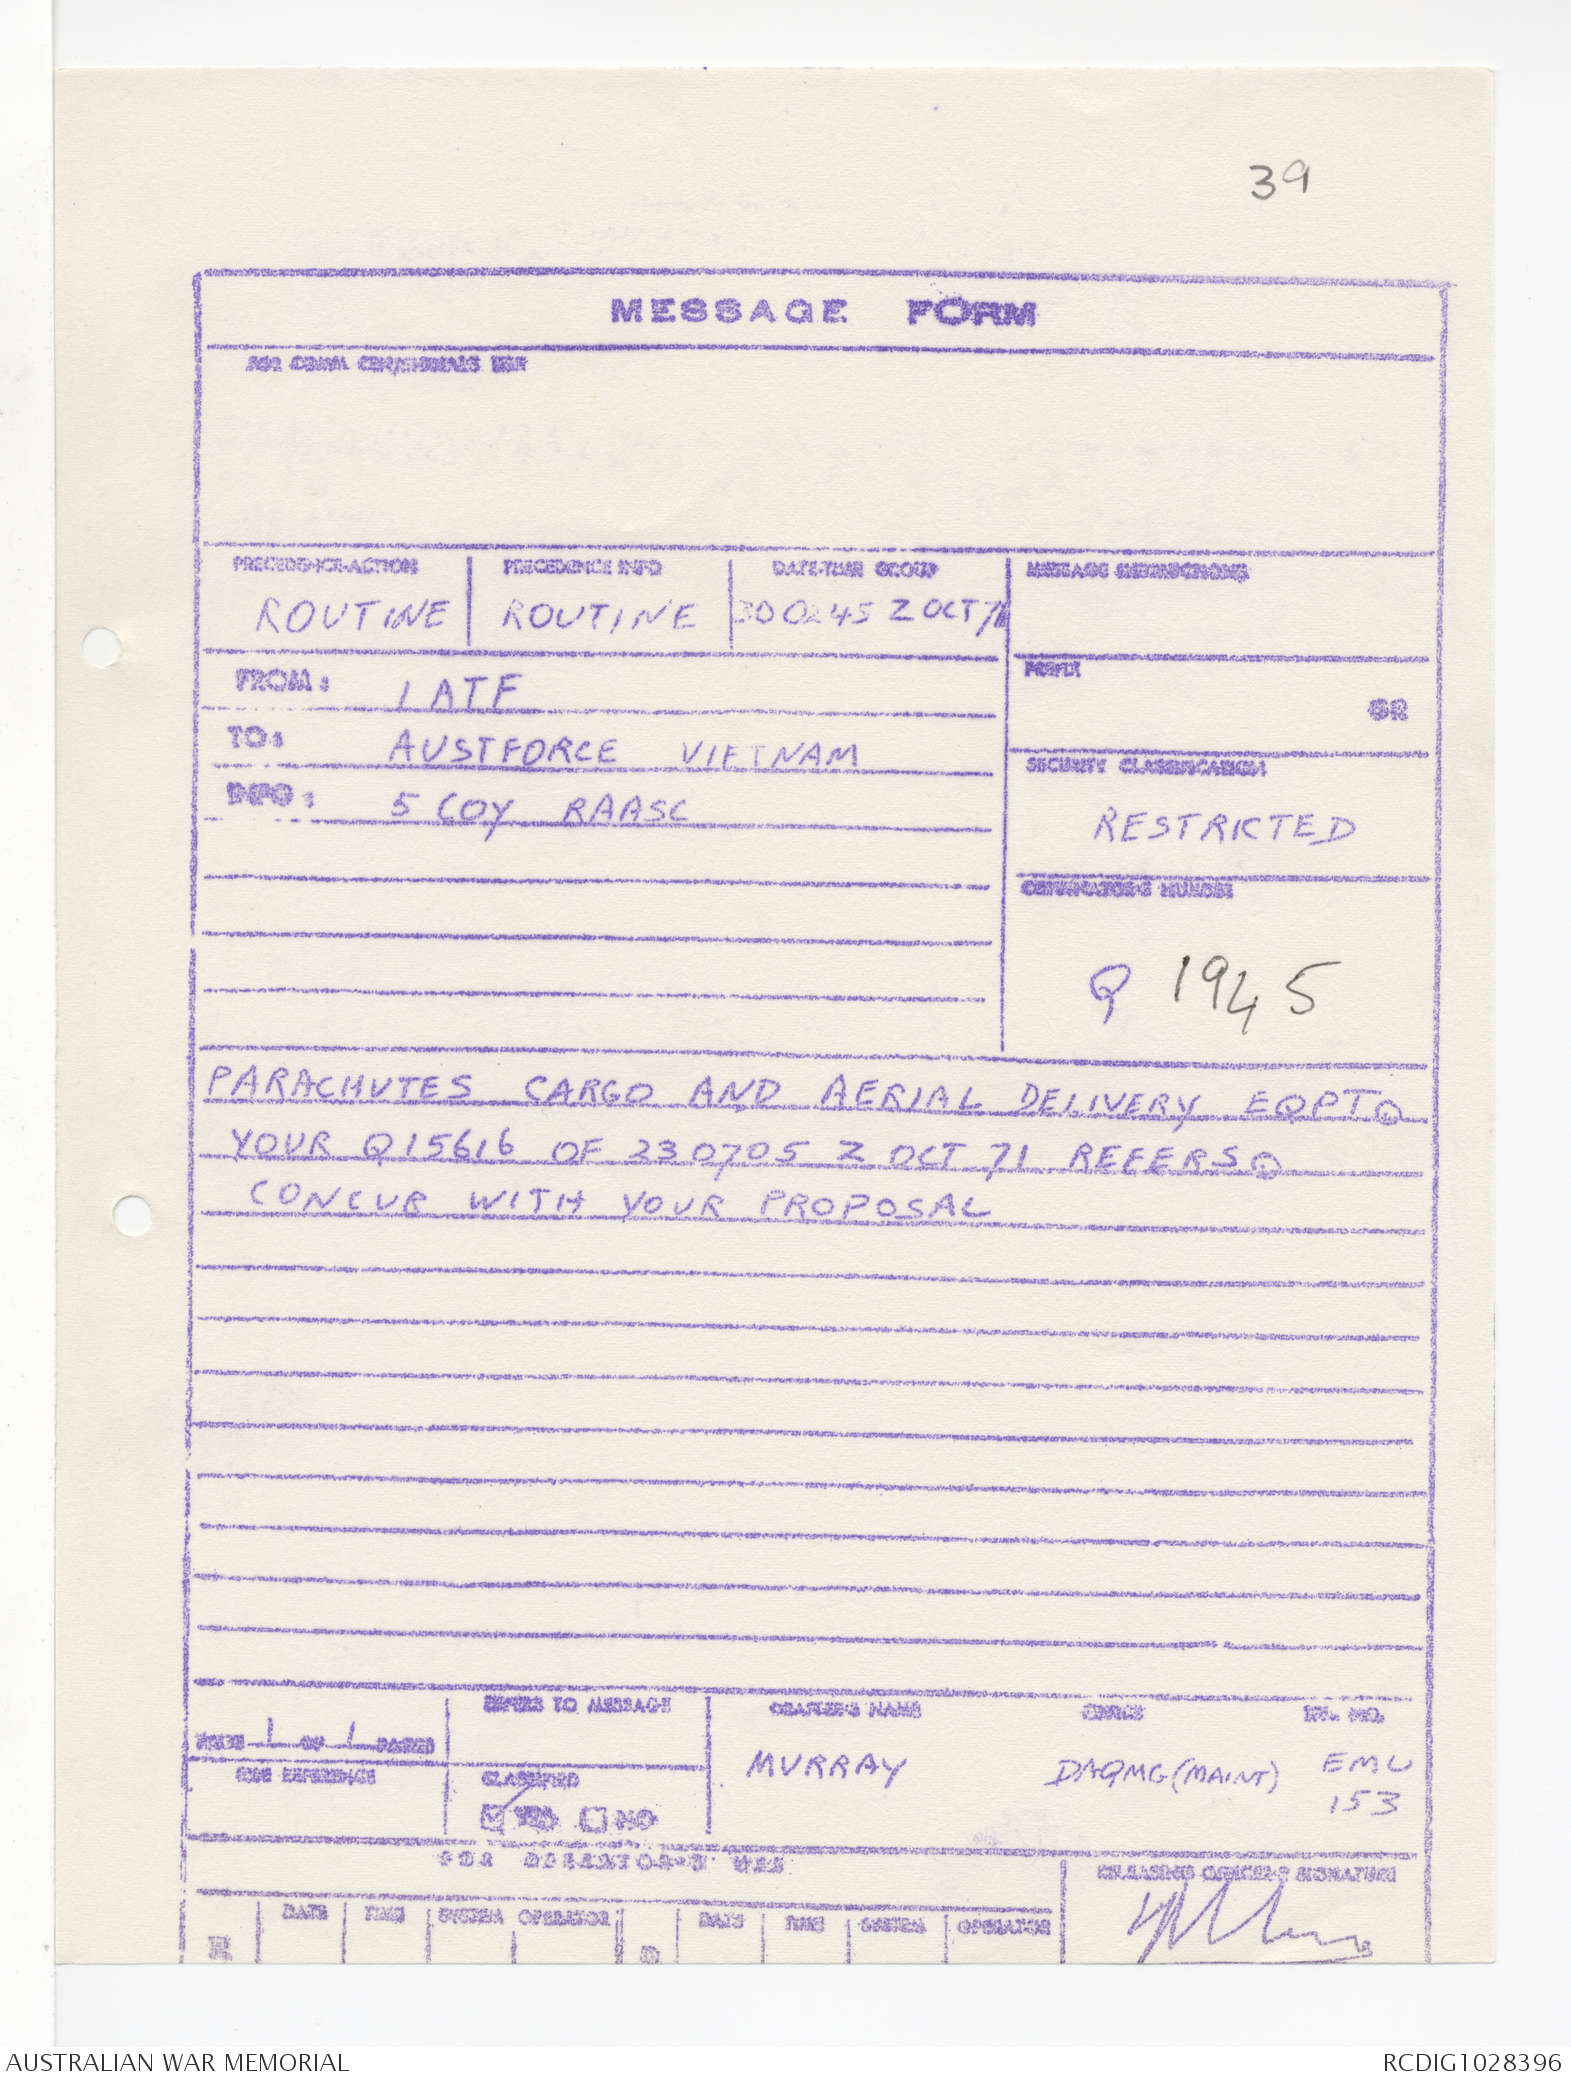 39
MESSAGE FORM
FOR COMM CEN/SIGNALS USE
PRECEDENCE-ACTION PRECEDENCE INFO DATE-TIME GROUP MESSAGE INSTRUCTIONS
ROUTINE ROUTINE 300245 Z OCT 71
FROM: 1 ATF
PREFIX
GR
TO: AUSTFORCE VIETNAM
SECURITY CLASSIFICATION
INFO: 5 COY RAASC
RESTRICTED
ORIGINATOR'S NUMBER
Q 1945
PARACHUTES CARGO AND AERIAL DELIVERY EQPT
YOUR Q15616 OF 230705 Z OCT 71 REFERS
CONCUR WITH YOUR PROPOSAL
PAGE 1 OF 1 PAGES
REFERS TO MESSAGE
DRAFTER'S NAME OFFICE TEL. NO.
FILE REFERENCE
CLASSIFIED
YES NO
MURRAY DAQMG (MAINT) EMU
153
FOR OPERATOR'S USE
RELEASING OFFICER'S SIGNATURE
R DATE TIME SYSTEM OPERATOR D DATE TIME SYSTEM OPERATOR
AUSTRALIAN WAR MEMORIAL
RCDIG1028396